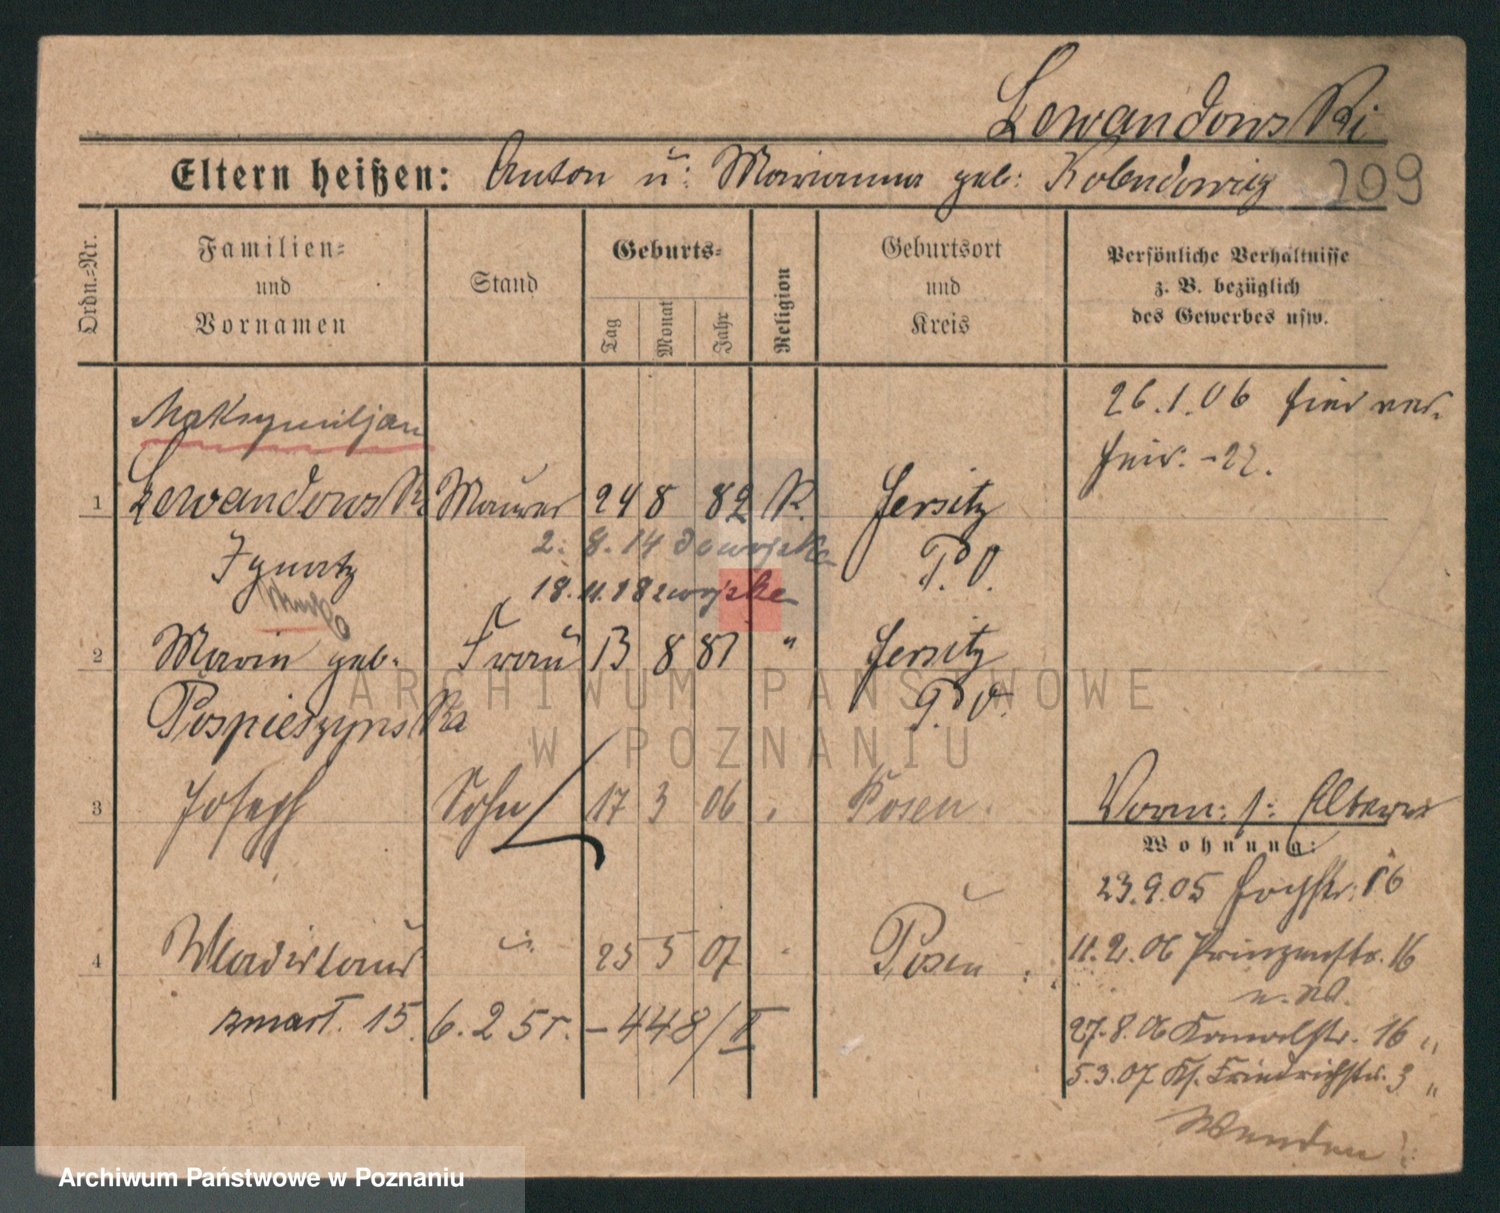 Lewandowski
Eltern heißen: Anton u: Marianna geb: Kolendowicz 209
Ordn.=Nr.
Familien=
und
Vornamen
Stand
Geburts=
Tag
Monat
Jahr
Religion
Geburtsort
und
Kreis
Persönliche Verhältnisse
z. B. bezüglich
des Gewerbes usw.
Maksymiljan
26.1.06
1 Lewandowski Maurer 24 8 82 K. Jersitz
Ignatz 2. 8. 14 do wojska P. O.
18. 11. 18 z wojska
2 Maria geb. Frau 13 8 81 " Jersitz
Pospieszynska P. O.
3 Joseph Sohn 17 3 06 " Posen.
4 Wladislaus " 25 5 07 " Posen
zmarł. 15. 6. 25 r. – 448/II
Wohnung:
23.9.05 16
11.2.06 Prinzenstr. 16
27.8.06 Kanalstr. 16 "
5.3.07 Kl. Friedrichstr. 3 "
Wenden!
ARCHIWUM PAŃSTWOWE
W POZNANIU
Archiwum Państwowe w Poznaniu